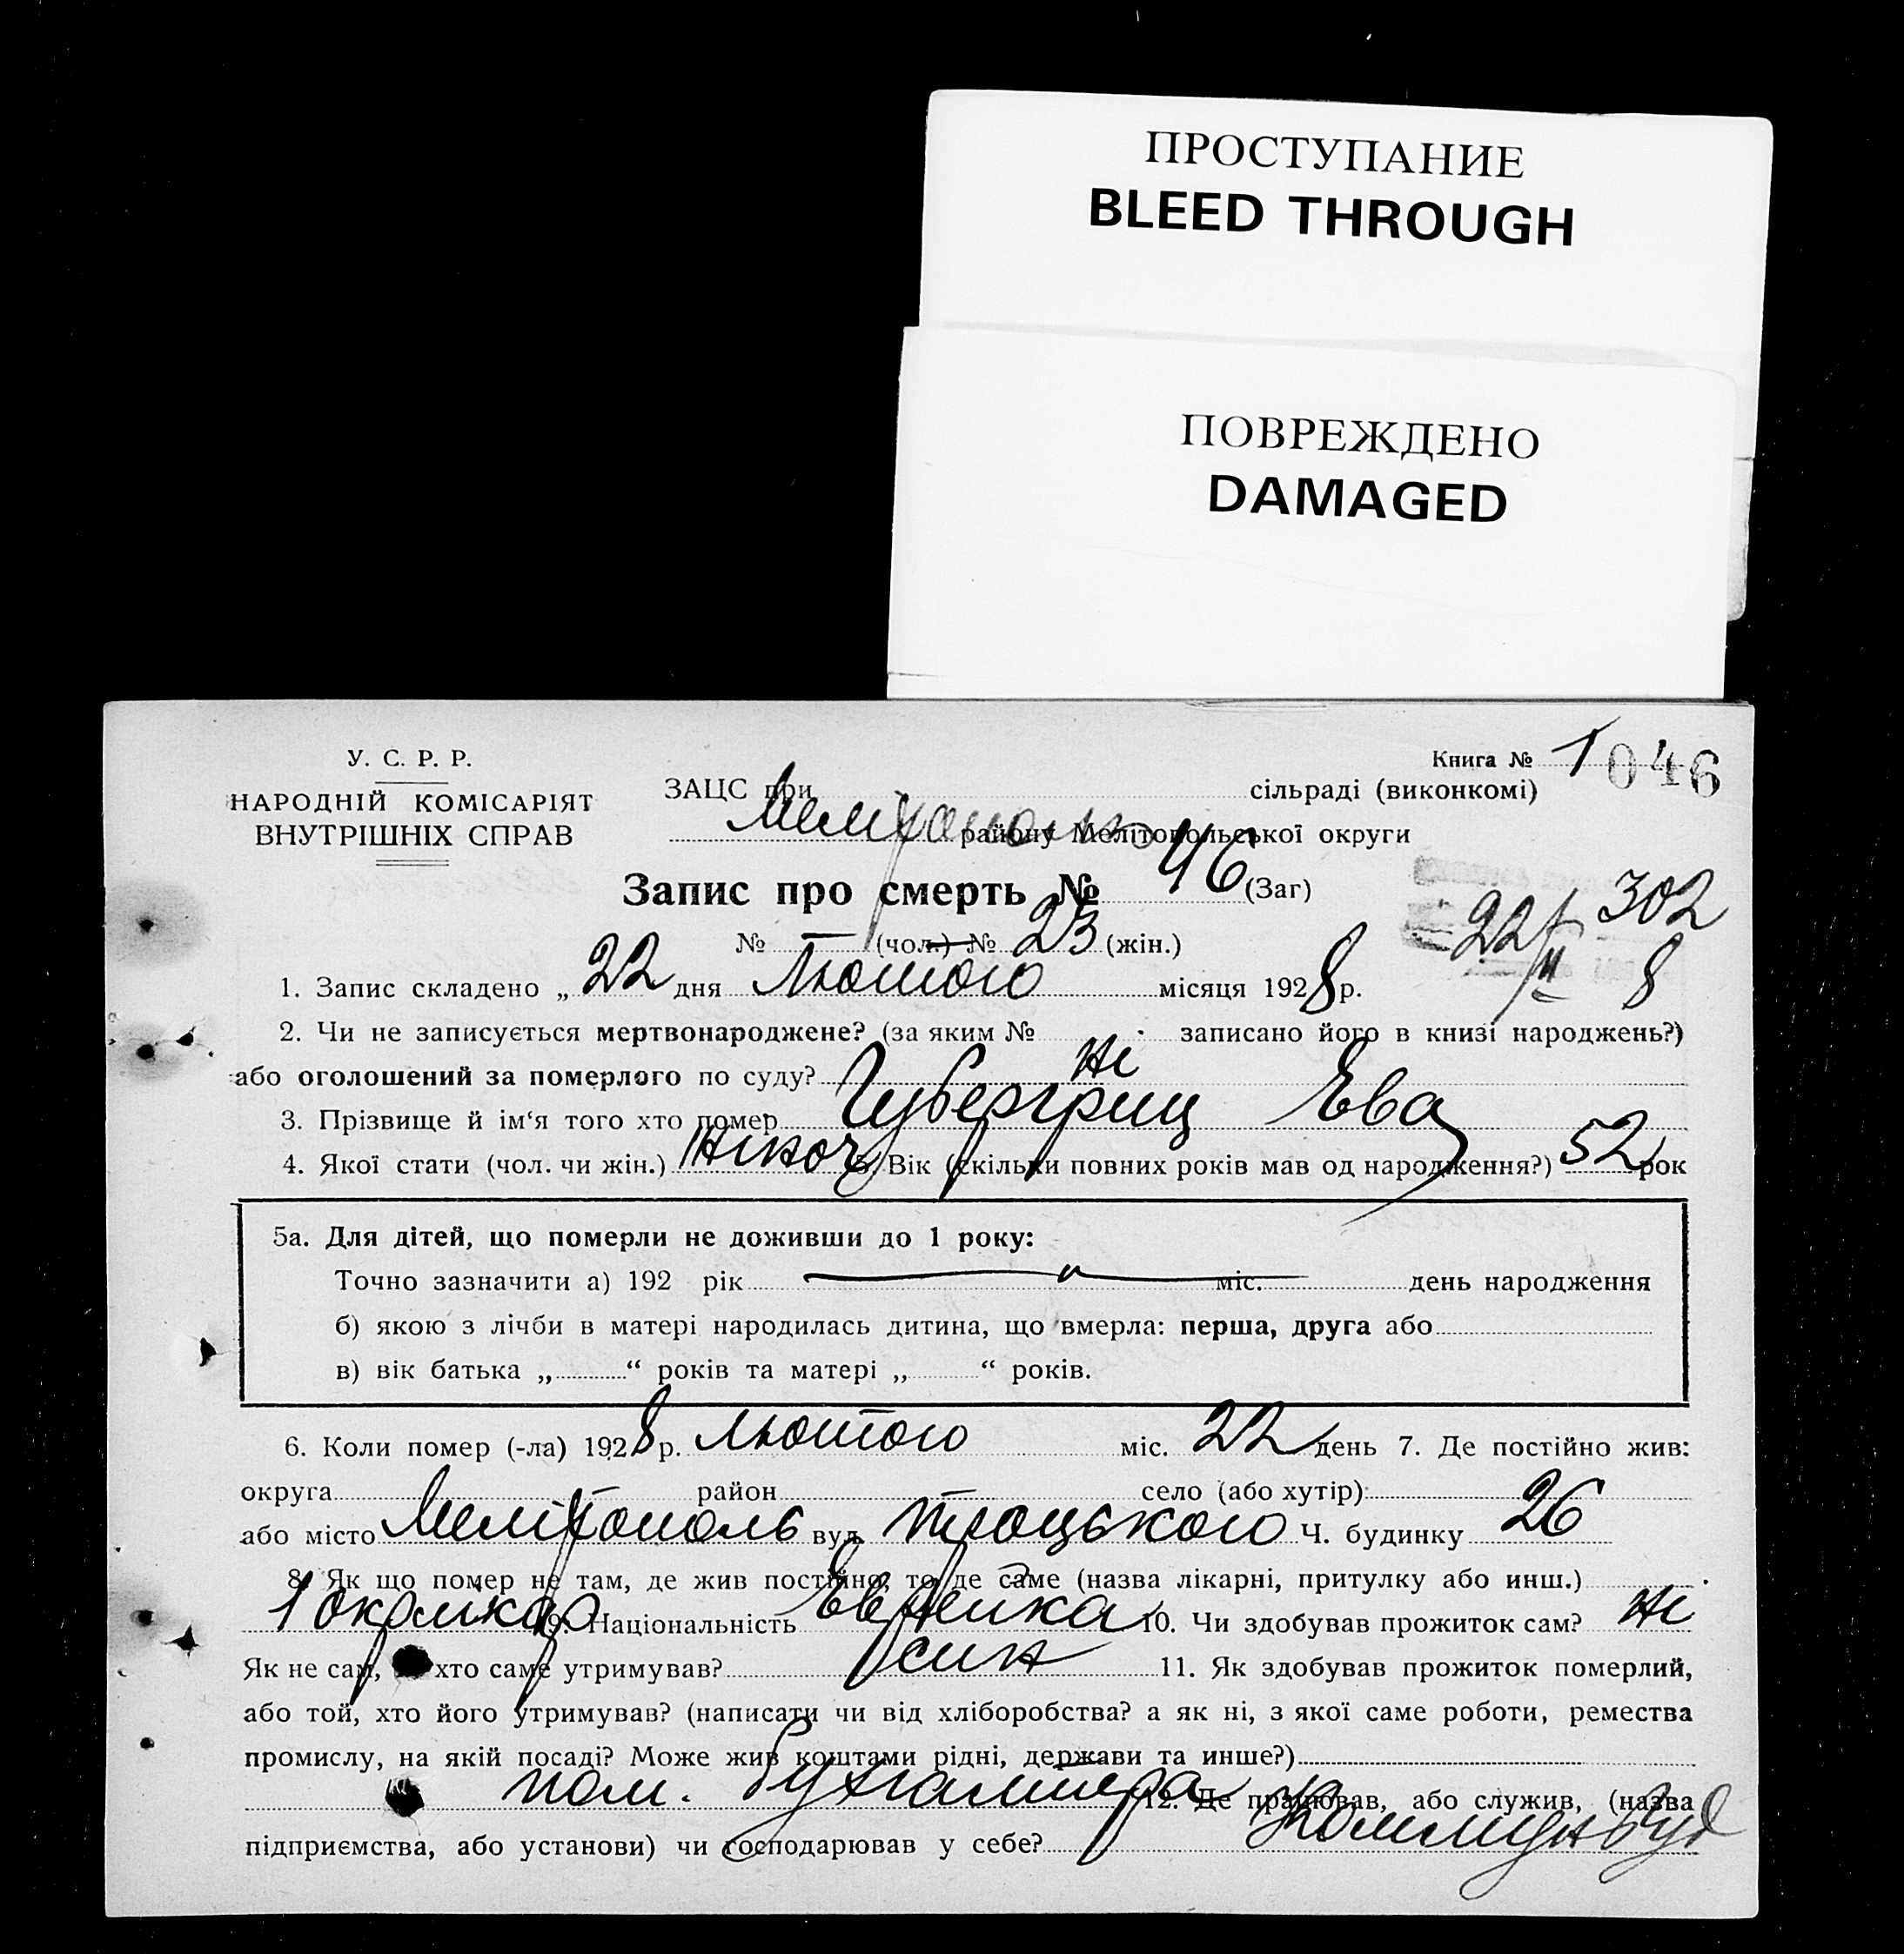 ПРОСТУПАНИЕ
BLEED THROUGH
ПОВРЕЖДЕНО
DAMAGED
У. С. Р. Р.
НАРОДНІЙ КОМІСАРІЯТ
ВНУТРІШНІХ СПРАВ
Книга № 1 046
ЗАЦС при сільраді (виконкомі)
Мелітополь району Мелітопольської округи
Запис про смерть № 46 (Заг)
302
№ — (чол.) № 23 (жін.)
22/II 8
1. Запис складено „ 22 дня Лютого місяця 1928 р.
2. Чи не записується мертвонароджене? (за яким № записано його в книзі народжень?)
або оголошений за померлого по суду? Ні
3. Прізвище й ім‘я того хто помер Губергриц Ева
4. Якої стати (чол. чи жін.) жіноч 5. Вік (скільки повних років мав од народження?) 52 рок
5а. Для дітей, що померли не доживши до 1 року:
Точно зазначити а) 192 рік міс. день народження
б) якою з лічби в матері народилась дитина, що вмерла: перша, друга або
в) вік батька „ “ років та матері „ “ років.
6. Коли помер (-ла) 1928 р. Лютого міс. 22 день 7. Де постійно жив:
округа район село (або хутір)
або місто Мелітополь вул. Троцького Ч. будинку 26
8. Як що помер не там, де жив постійно, то де саме (назва лікарні, притулку або инш.)
1 окрлікар 9. Національність Еврейка 10. Чи здобував прожиток сам? Ні
Як не сам, хто саме утримував? син 11. Як здобував прожиток померлий,
або той, хто його утримував? (написати чи від хліборобства? а як ні, з якої саме роботи, ремества
промислу, на якій посаді? Може жив коштами рідні, держави та инше?)
пом. бухгалтера 12. Де працював, або служив, (назва
підприємства, або установи) чи господарював у себе? Коммунбуд